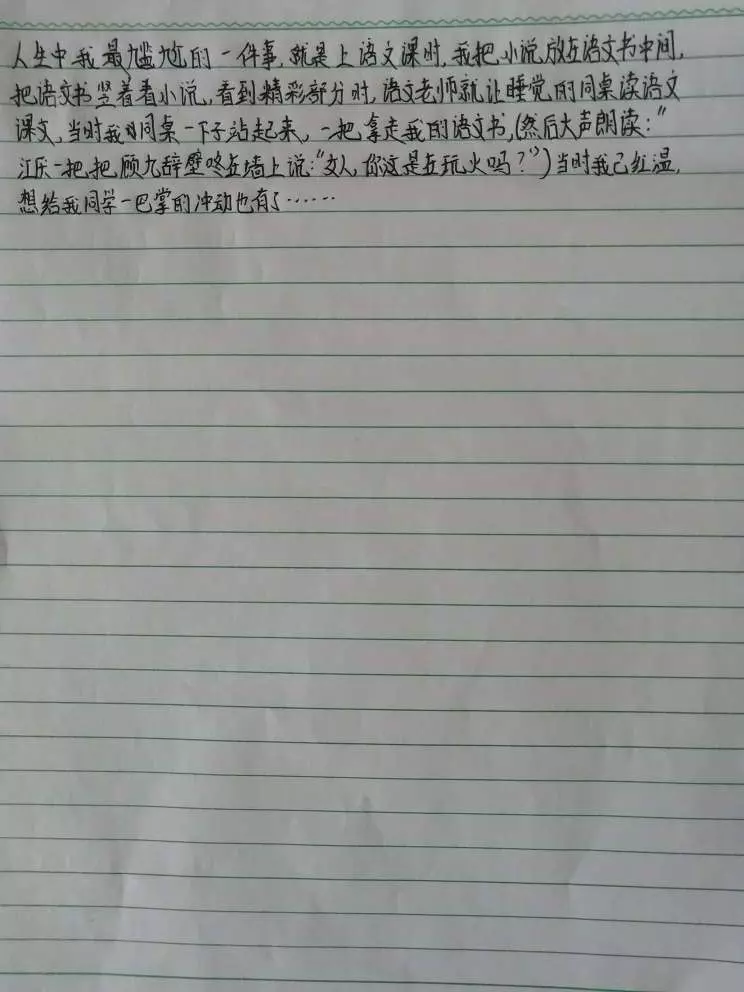 人生中我最尴尬的一件事,就是上语文课时,我把小说放在语文书中间,
把语文书竖着看小说,看到精彩部分时,语文老师就让睡觉的同桌读语文
课文,当时我同桌一下子站起来,一把拿走我的语文书,(然后大声朗读:"
江厌一把把顾九辞壁咚在墙上说:"女人,你这是在玩火吗?")当时我已红温,
想给我同学一巴掌的冲动也有了……